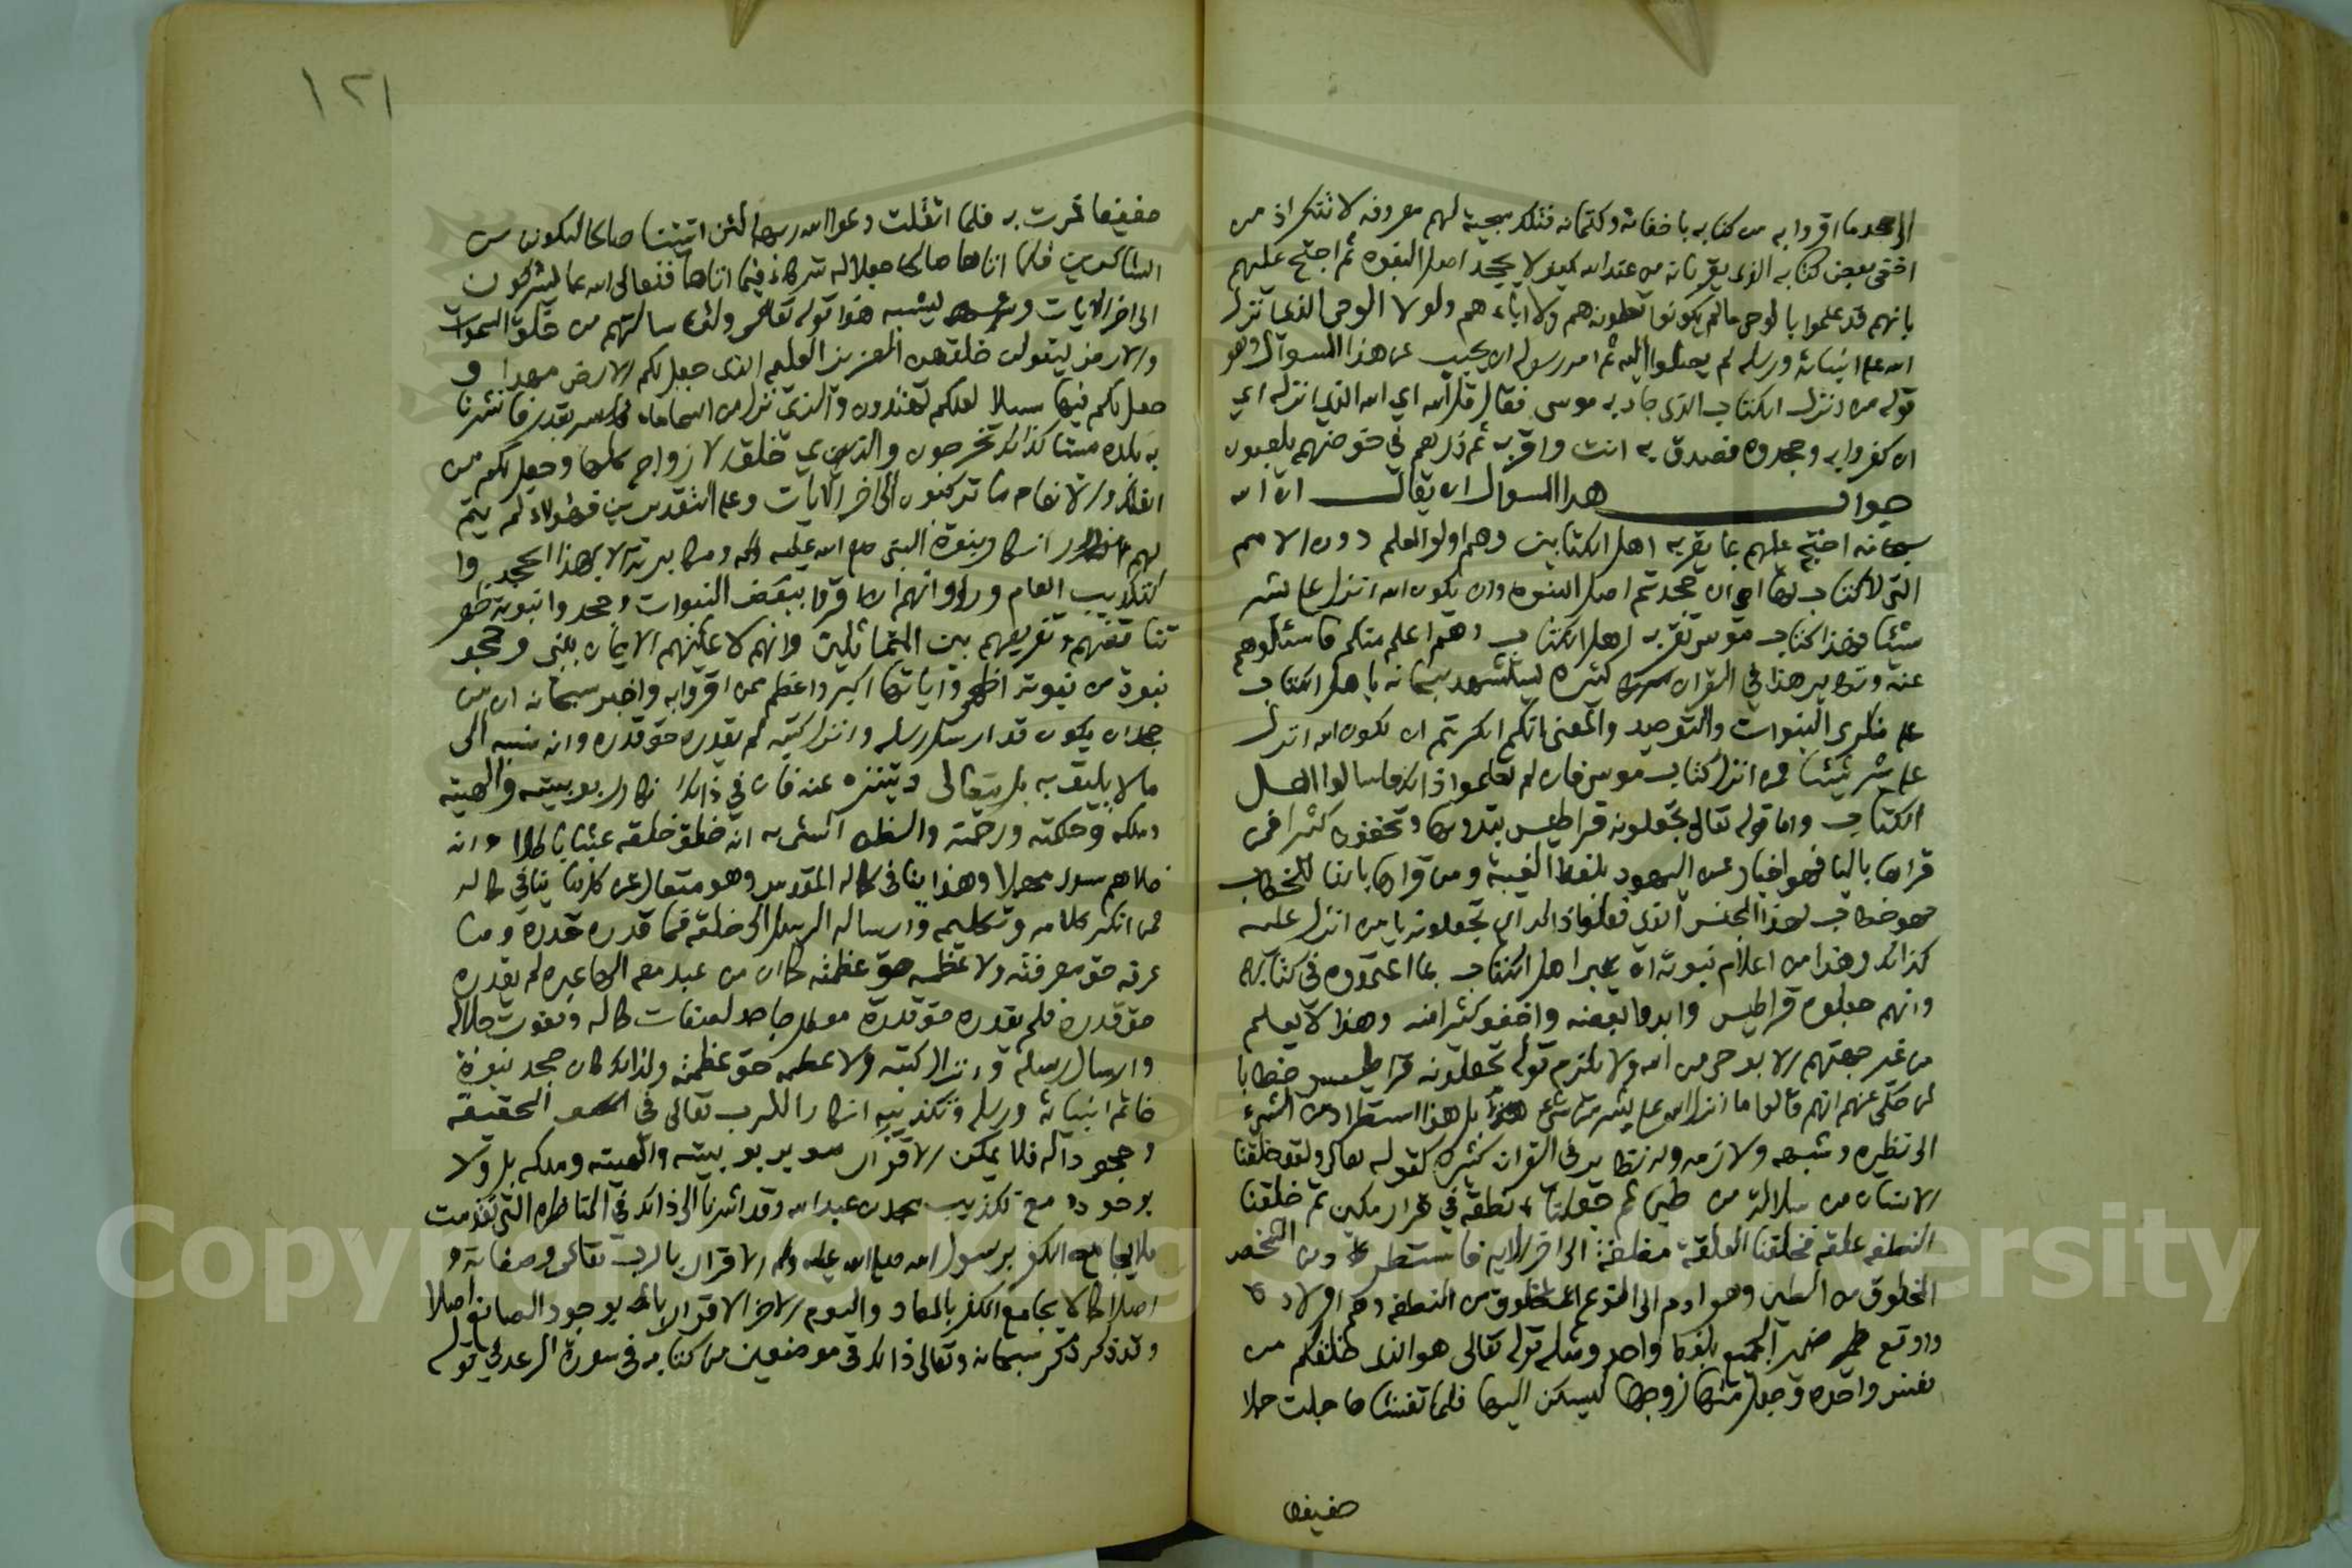 الى جحد ما اقروا به من كتابه باخفائه وكتمانه فتلك سجية لهم معروفة لا تنكر اذ من
اخفى بعض كتابه الذي يقر بانه من عند الله كيف لا يجحد اصل النبوة ثم احتج عليهم
بانهم قد علموا بالوحي ما لم يكونوا يعلمونه هم ولا اباءهم ولولا الوحي الذي انزل
الله على انبيائه ورسله لم يصلوا اليه ثم امر رسوله ان يجيب عن هذا السوال وهو
قوله من انزل الكتاب الذي جاء به موسى فقال قل الله اي الله الذي انزله اي
ان كفروا به وجحدوه فصدق به انت واقر به ثم ذرهم في خوضهم يلعبون
جواب هذا السوال ان يقال ان الله
سبحانه احتج عليهم بما يقر به اهل الكتابين وهم اولوا العلم دون الامم
التي لا كتاب لها اي ان جحدتم اصل النبوة وان يكون الله انزل على بشر
شيئا فهذا كتاب موسى تقر به اهل الكتاب وهم اعلم منكم فاسئلوهم
عنه ونظاير هذا في القران كثيرة يستشهد سبحانه باهل الكتاب
على منكري النبوات والتوحيد والمعنى انكم انكرتم ان يكون الله انزل
على بشر شيئا فمن انزل كتاب موسى فان لم تعلموا ذلك فاسالوا اهل
الكتاب واما قوله تعالى يجعلونه قراطيس يبدونها ويخفون كثيرا فمن
قراها باليا فهو اخبار عن اليهود بلفظ الغيبة ومن قراها بالتا للخطاب
فهو خطاب لهذا الجنس الذي فعلوا ذلك اي تجعلونه يا من انزل عليه
كذلك وهذا من اعلام نبوته ان يخبر اهل الكتاب بما اعتمدوه في كتابهم
وانهم جعلوه قراطيس وابدوا بعضه واخفو كثيرا منه وهذا لا يعلم
من غير جهتهم الا بوحي من الله ولا يلزم قوله تجعلونه قراطيس خطابا
لمن حكى عنهم انهم قالوا ما انزل الله على بشر من شيء بل هذا استطراد من الشيء
الى نظيره وشبهه ولازمه وله نظاير في القران كثيرة كقوله تعالى ولقد خلقنا
الانسان من سلالة من طين ثم جعلناه نطفة في قرار مكين ثم خلقنا
النطفة علقة فخلقنا العلقة مضغة الى اخر الاية فاستطرد من الشخص
المخلوق من الطين وهو ادم الى النوع المخلوق من النطفة وهم اولاده
واوقع ضمير الجميع بلفظ واحد ومثله قوله تعالى هو الذي خلقكم من
نفس واحدة وجعل منها زوجها ليسكن اليها فلما تغشاها حملت حملا
خفيفا
١٢١
خفيفا فمرت به فلما اثقلت دعوا الله ربهما لئن اتيتنا صالحا لنكونن من
الشاكرين فلما اتاهما صالحا جعلا له شركاء فيما اتاهما فتعالى الله عما يشركون
الى اخر الايات ويشبه هذا قوله تعالى ولئن سالتهم من خلق السموات
والارض ليقولن خلقهن العزيز العليم الذي جعل لكم الارض مهدا و
جعل لكم فيها سبلا لعلكم تهتدون والذي نزل من السماء ماء بقدر فانشرنا
به بلدة ميتا كذلك تخرجون والذي خلق الازواج كلها وجعل لكم من
الفلك والانعام ما تركبون الى اخر الايات وعلى التقديرين فهؤلاء لم يتم
لهم انكار نبوة النبي صلى الله عليه وسلم ومكابرته الا بهذا الجحد وا
لتكذيب العام وراوا انهم ان اقروا ببعض النبوات وجحدوا نبوته ظهر
تناقضهم وتفريقهم بين المتماثلين وانهم لا يمكنهم الايمان بنبي وجحد
نبوة من نبوته اظهر واياتها اكبر واعظم ممن اقروا به واخبر سبحانه ان من
جحد ان يكون قد ارسل رسله وانزل كتبه لم يقدره حق قدره وانه نسبه الى
ما لا يليق به بل يتعالى ويتنزه عنه فان في ذلك انكار ربوبيته والهيته
وملكه وحكمته ورحمته والظن السيء به انه خلق خلقه عبثا باطلا وانه
خلاهم سدى مهملا وهذا ينافي كماله المقدس وهو متعال عن كل ما ينافي كماله
فمن انكر كلامه وتكليمه وارساله الرسل الى خلقه فما قدره حق قدره وما
عرفه حق معرفته ولا عظمه حق عظمته كما ان من عبد معه الها غيره لم يقدره
حق قدره فلم يقدره حق قدره معطل جاحد لصفات كماله ونعوت جلاله
وارسال رسله وانزال كتبه ولا عظمه حق عظمته ولذلك كان جحد نبوة
خاتم انبيائه ورسله وتكذيبه انكارا للرب تعالى في الحقيقة
وجحودا له فلا يمكن الاقرار بربوبيته والهيته وملكه بل ولا
بوجوده مع تكذيب محمد بن عبد الله وقد اشرنا الى ذلك في المناظرة التي تقدمت
فلا يجامع الكفر برسول الله صلى الله عليه وسلم الاقرار بالرب تعالى وصفاته و
اصلا كما لا يجامع الكفر بالمعاد واليوم الاخر الاقرار بوجود الصانع اصلا
وقد ذكر سبحانه وتعالى ذلك في موضعين من كتابه في سورة الرعد في قوله